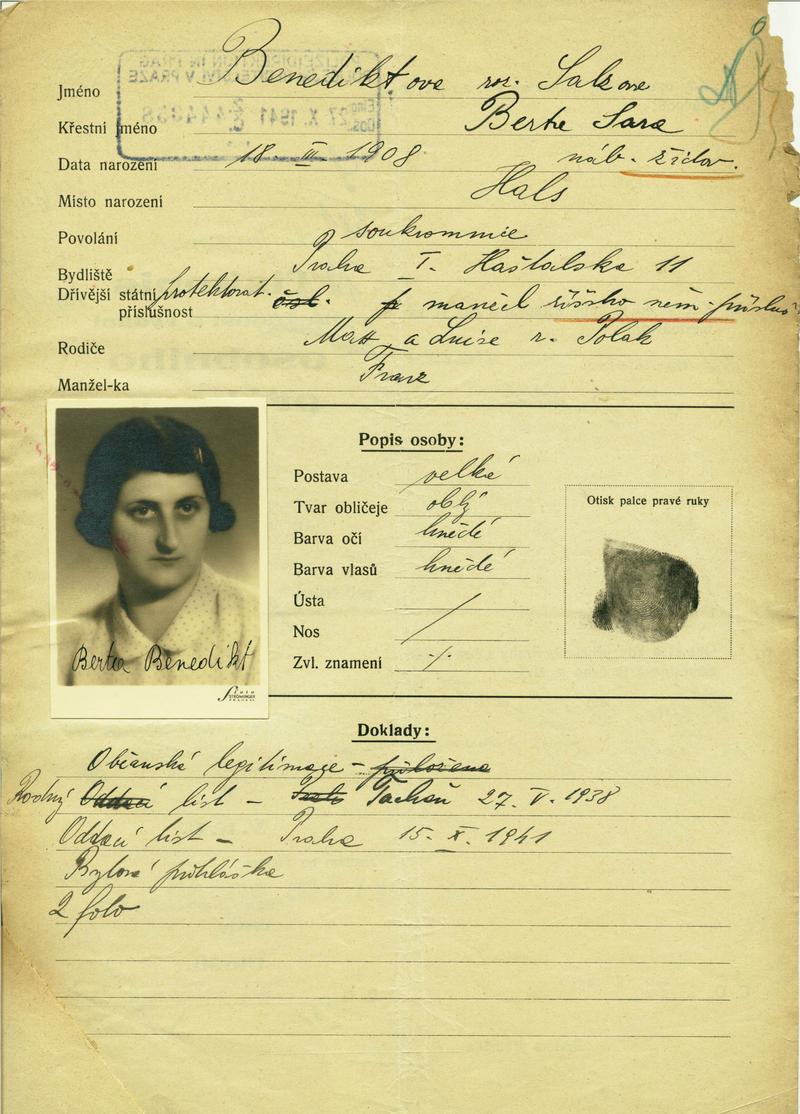 Jméno Benediktova roz. Salzova
Křestní jméno Berta Sara
Data narození 18. III. 1908 náb. židov.
Místo narození Hals
Povolání soukromnice
Bydliště Praha I. Haštalska 11
Dřívější státní protektorat. čsl. manžel říšsko něm. přísluš
příslušnost
Rodiče a Luise r. Polak
Manžel-ka Franz
Popis osoby:
Postava velká
Tvar obličeje oblý
Barva očí hnědé
Barva vlasů hnědé
Ústa /
Nos
Zvl. znamení ·/·
Otisk palce pravé ruky
Berta Benedikt
Foto
STRÖMINGER
Doklady:
Občanská legitimace – přiložena
Rodný Oddací list – Tachau 27. V. 1938
Oddací list – Praha 15. X. 1941
Bytová přihláška
2 foto
POLIZEIDIREKTION IN PRAG
V PRAZE
27. X. 1941